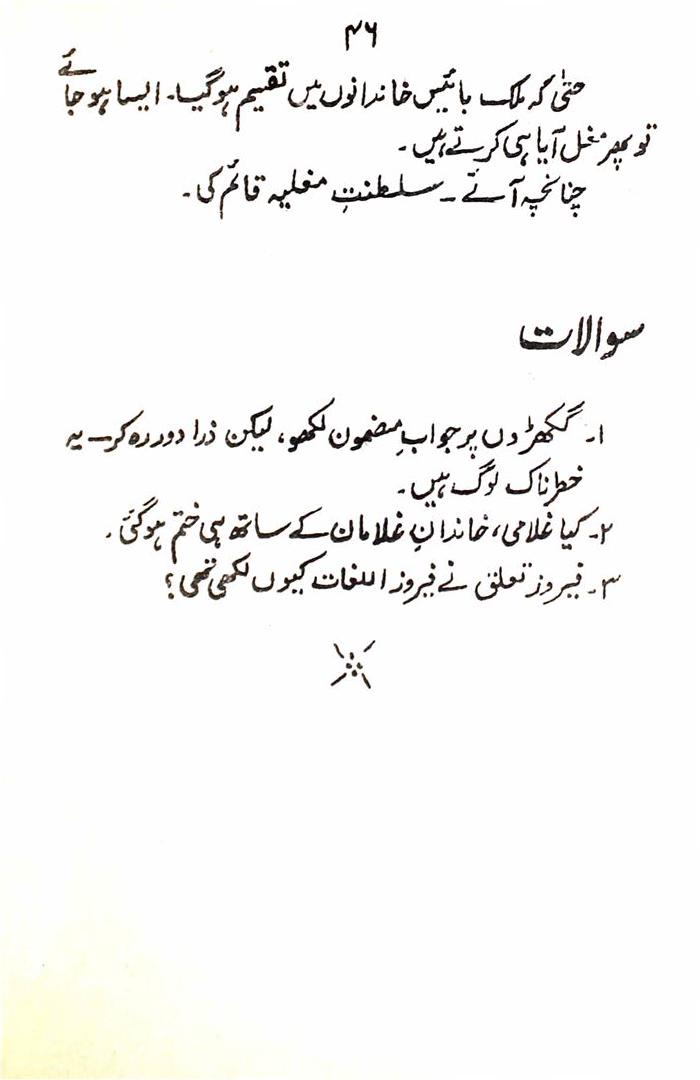 ۴۶
حتیٰ کہ ملک بائیس خاندانوں میں تقسیم ہو گیا۔ ایسا ہو جائے
تو پھر مغل آیا ہی کرتے ہیں۔
چنانچہ آئے۔ سلطنتِ مغلیہ قائم کی۔
سوالات
۱۔ گکھڑوں پر جوابِ مضمون لکھو، لیکن ذرا دور رہ کر۔ یہ
خطرناک لوگ ہیں۔
۲۔ کیا غلامی، خاندانِ غلامان کے ساتھ ہی ختم ہو گئی۔
۳۔ فیروز تغلق نے فیروز اللغات کیوں لکھی تھی؟